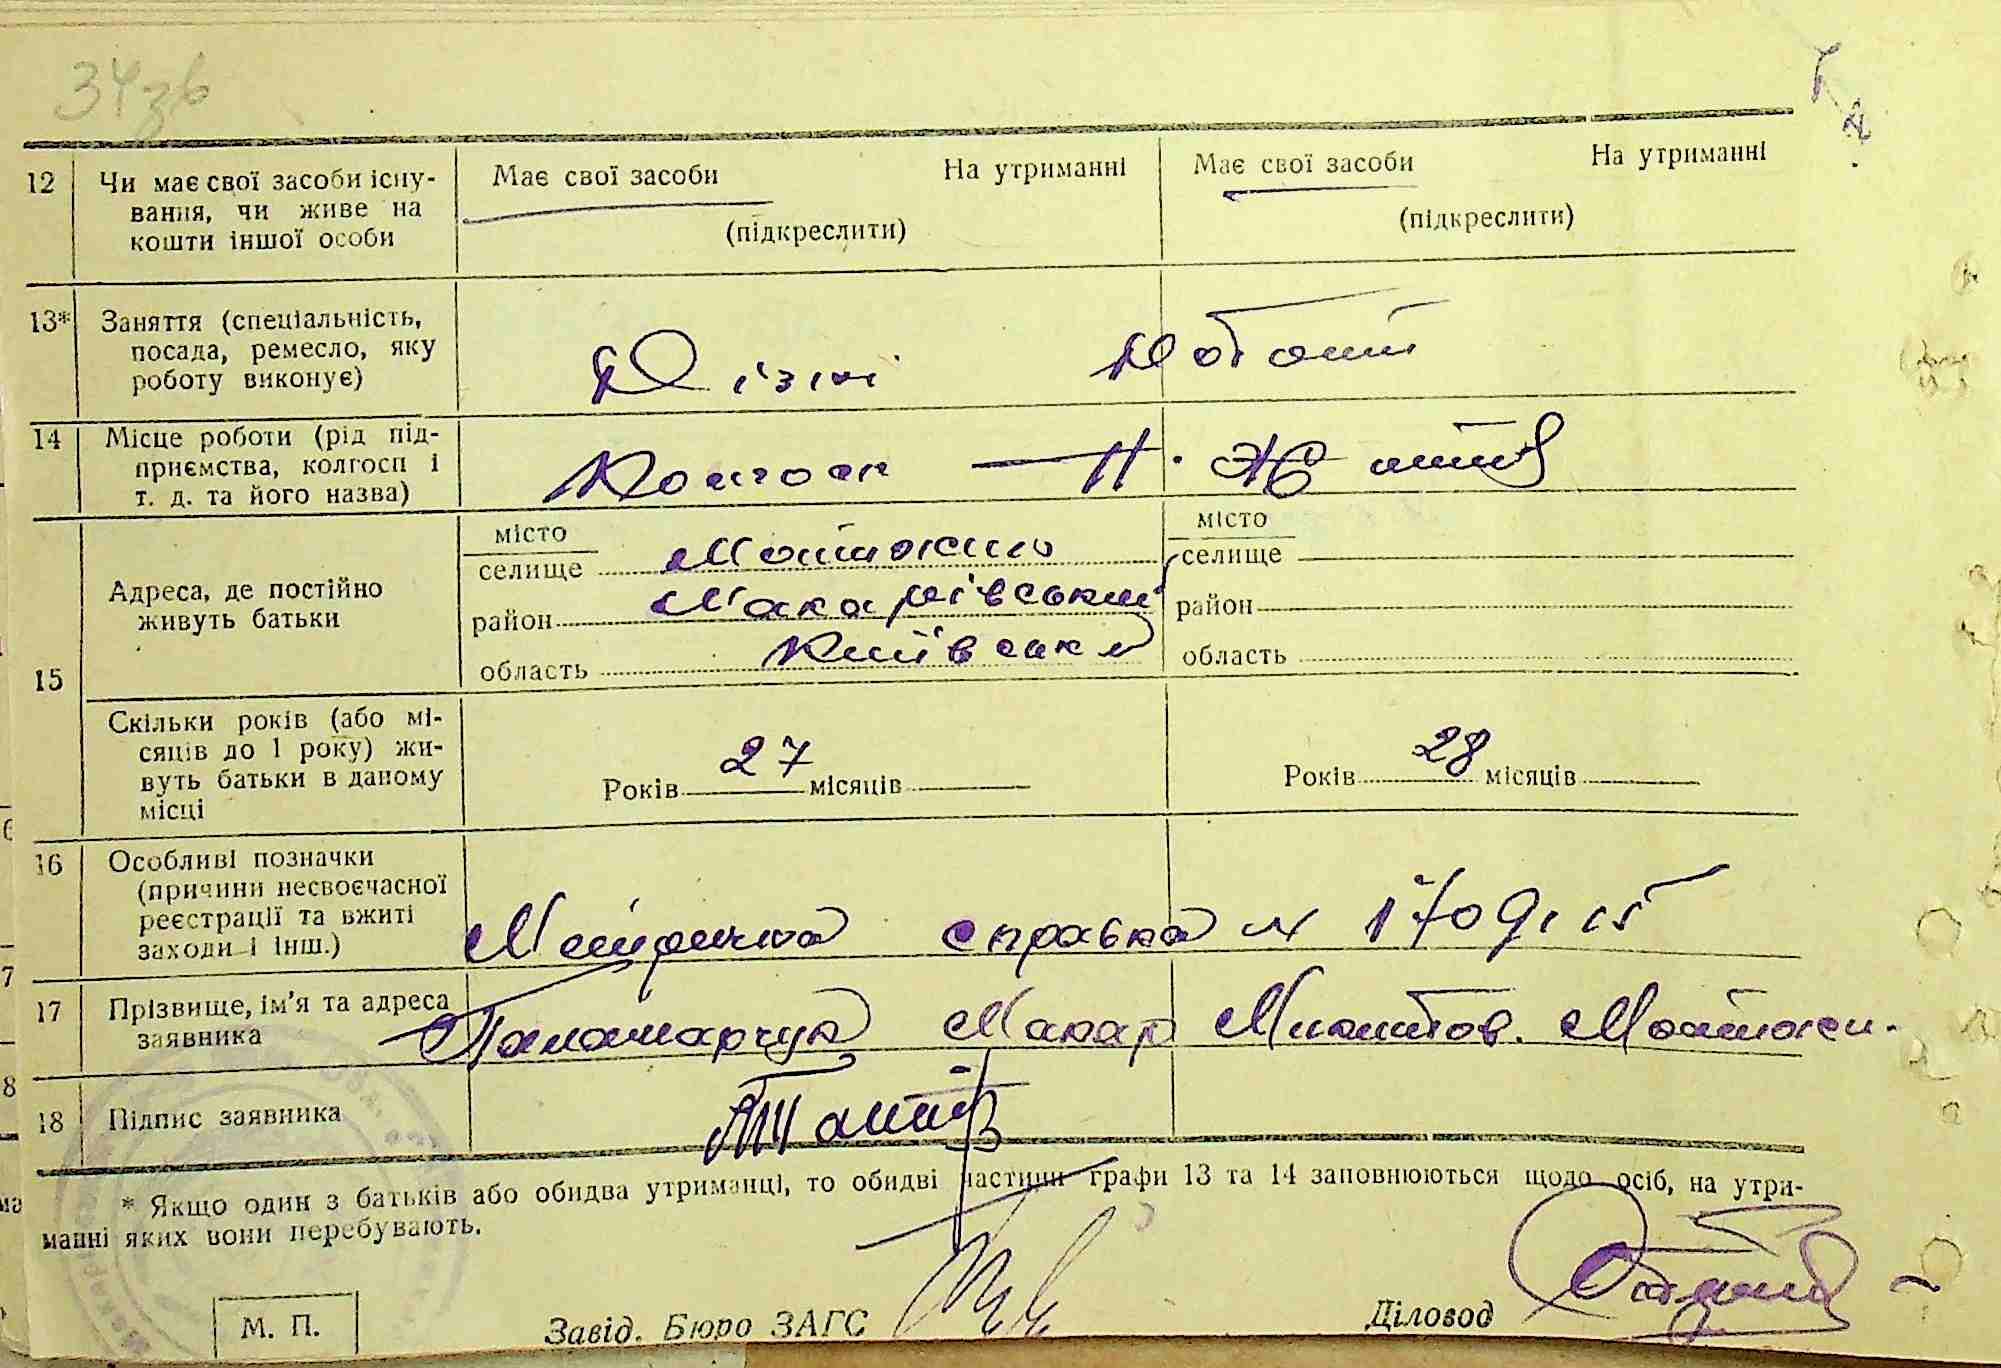 34зв
12 Чи має свої засоби існу-
вання, чи живе на
кошти іншої особи
Має свої засоби На утриманні
(підкреслити)
Має свої засоби На утриманні
(підкреслити)
13* Заняття (спеціальність,
посада, ремесло, яку
роботу виконує)
Різні роботи
14 Місце роботи (рід під-
приємства, колгосп і
т. д. та його назва)
Колгосп — Н. Життя
15 Адреса, де постійно
живуть батьки
місто
селище Мотижин
район Макарівський
область Київська
місто
селище
район
область
Скільки років (або мі-
сяців до 1 року) жи-
вуть батьки в даному
місці
Років 27 місяців
Років 28 місяців
16 Особливі позначки
(причини несвоєчасної
реєстрації та вжиті
заходи і інш.)
Метрична справка №
17 Прізвище, ім'я та адреса
заявника
Паламарчук Макар Микитов. Мотижи.
18 Підпис заявника
* Якщо один з батьків або обидва утриманці, то обидві частини графи 13 та 14 заповнюються щодо осіб, на утри-
манні яких вони перебувають.
М. П.
Завід. Бюро ЗАГС
Діловод